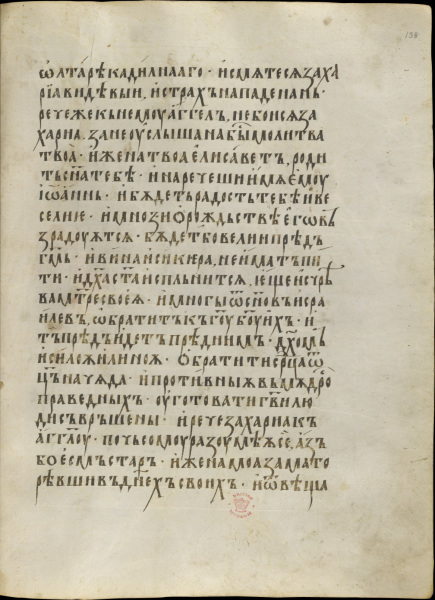 ѡлтарѣ кадилнааго · и смѧтесѧ заха
рїа видѣвыи, и страхъ нападе на нь ·
рече же къ немоу аггелъ, не боисѧ за
харїа · зане оуслышана бы молитва
твоа · и жена твоа елисаветъ, роди
тъ сн҃а тебѣ · и наречеши имѧ емоу
їѡаннь · и бѫдетъ радость тебѣ и ве
селие · и мнози ѡ рождьствѣ его въ
зрадоуѫтсѧ · бѫдет бо велии прѣдъ
гм҃ь · и вина и сикера, не имать пи
ти · и дх҃а ст҃а исплънитсѧ, еще и съ чрѣ
ва мт҃ре своеѧ · и многы ѿ сн҃ѡвъ исра
илевъ, ѡбратитъ къ гоу҃ боу҃ ихъ · и
тъ прѣдъидетъ прѣд нимъ · дх҃омь
и силоѫ илиноѫ · ѡбратити ср҃ца ѿ
цъ на чѧда · и противныѧ въ мѫдро
праведныхъ · оуготовати гв҃и лю
ди съвръшены · и рече захариа къ
агг҃лоу · по чьсомоу разоумѣѫ се, азъ
бо есмъ старъ · и жена моа заматo
рѣвши въ дн҃ехъ своихъ · и ѿвѣща
138